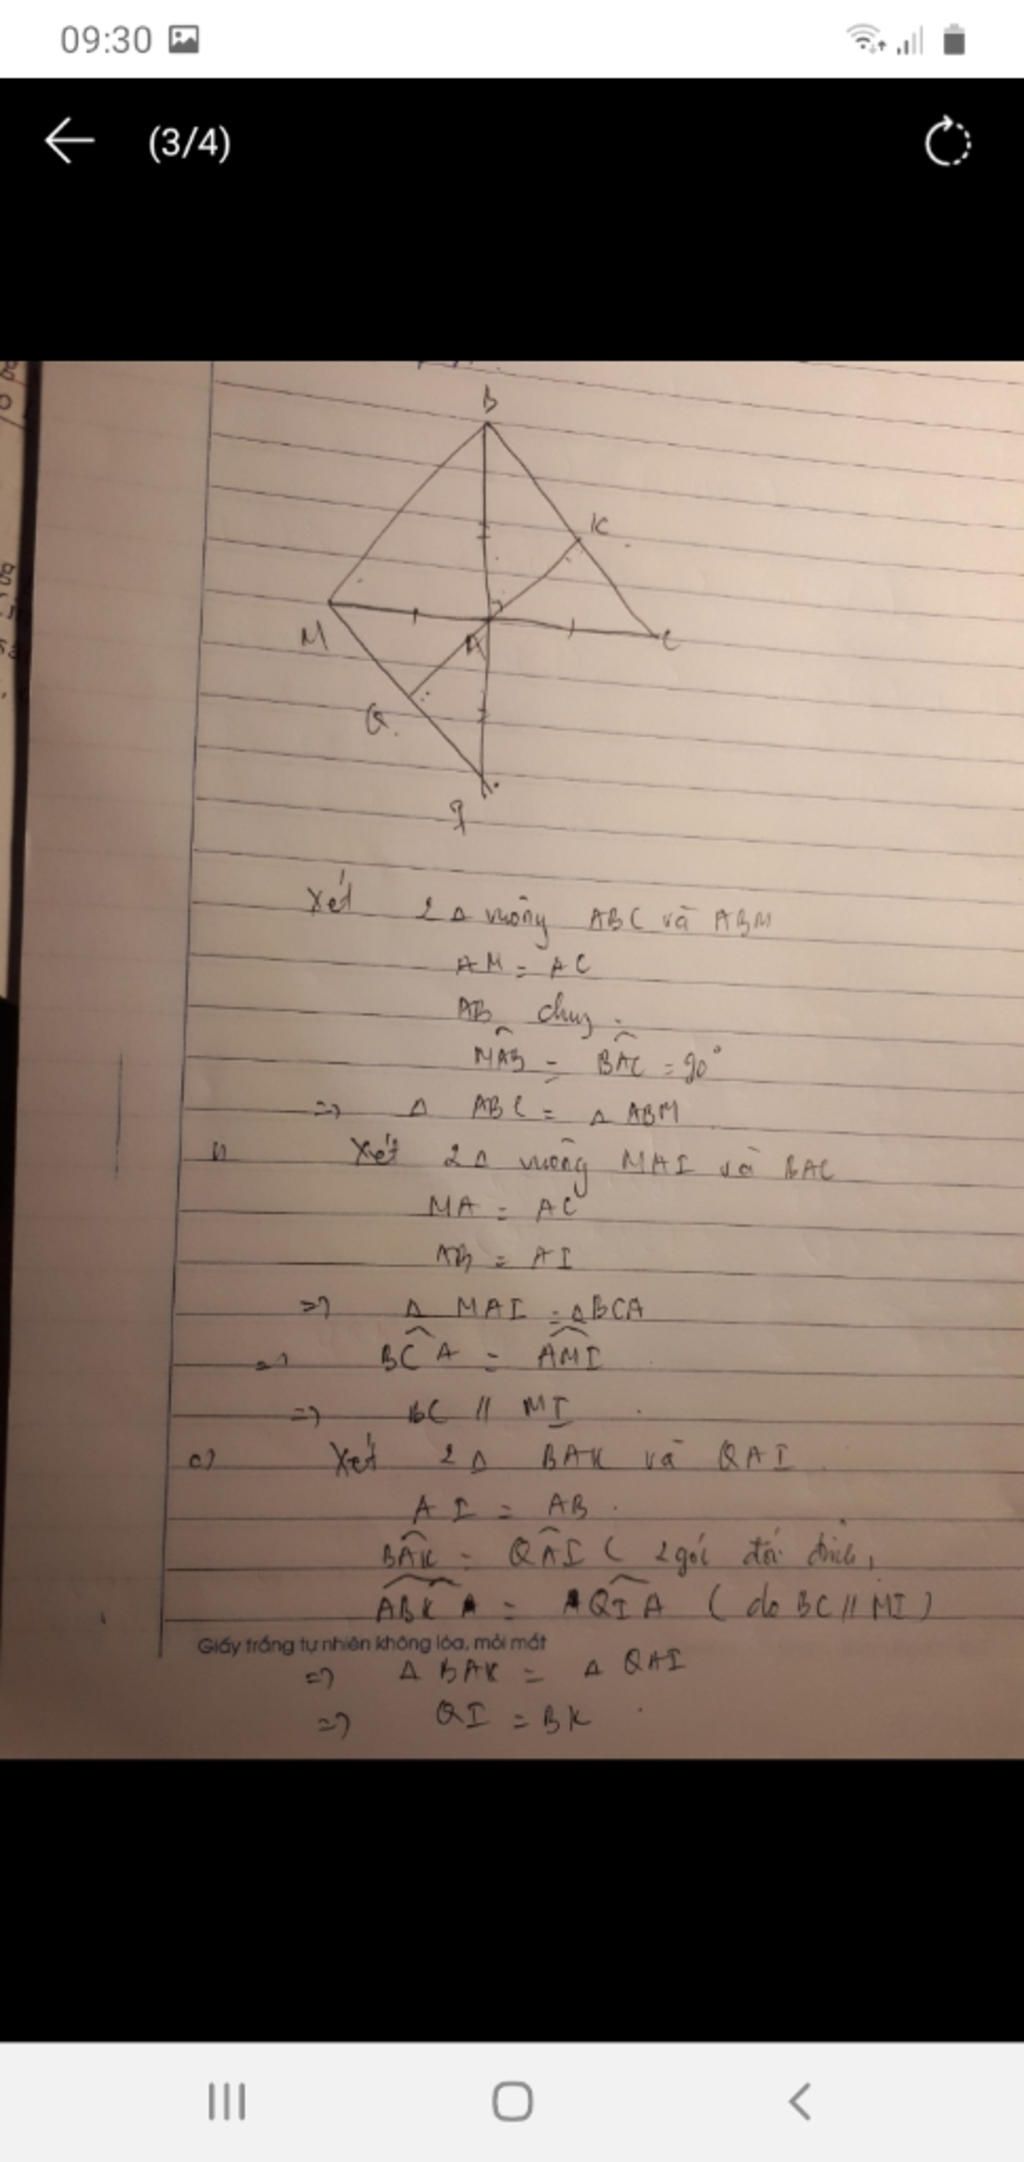 09:30
(3/4)
B
K
M
A
C
Q.
I
Xét 2 Δ vuông ABC và ABM
AM = AC
AB chung.
MAB = BAC = 90°
=> Δ ABC = Δ ABM
Xét 2Δ vuông MAI và BAC
MA = AC
AB = AI
=> Δ MAI = ΔBCA
=> BCA = AMI
=> BC // MI
c) Xét 2 Δ BAK và QAI
AI = AB.
BAK = QAI ( 2 góc đối đỉnh,
ABK = QIA ( do BC // MI )
Giấy trắng tự nhiên không lóa, mỏi mắt
=> Δ BAK = Δ QAI
=> QI = BK